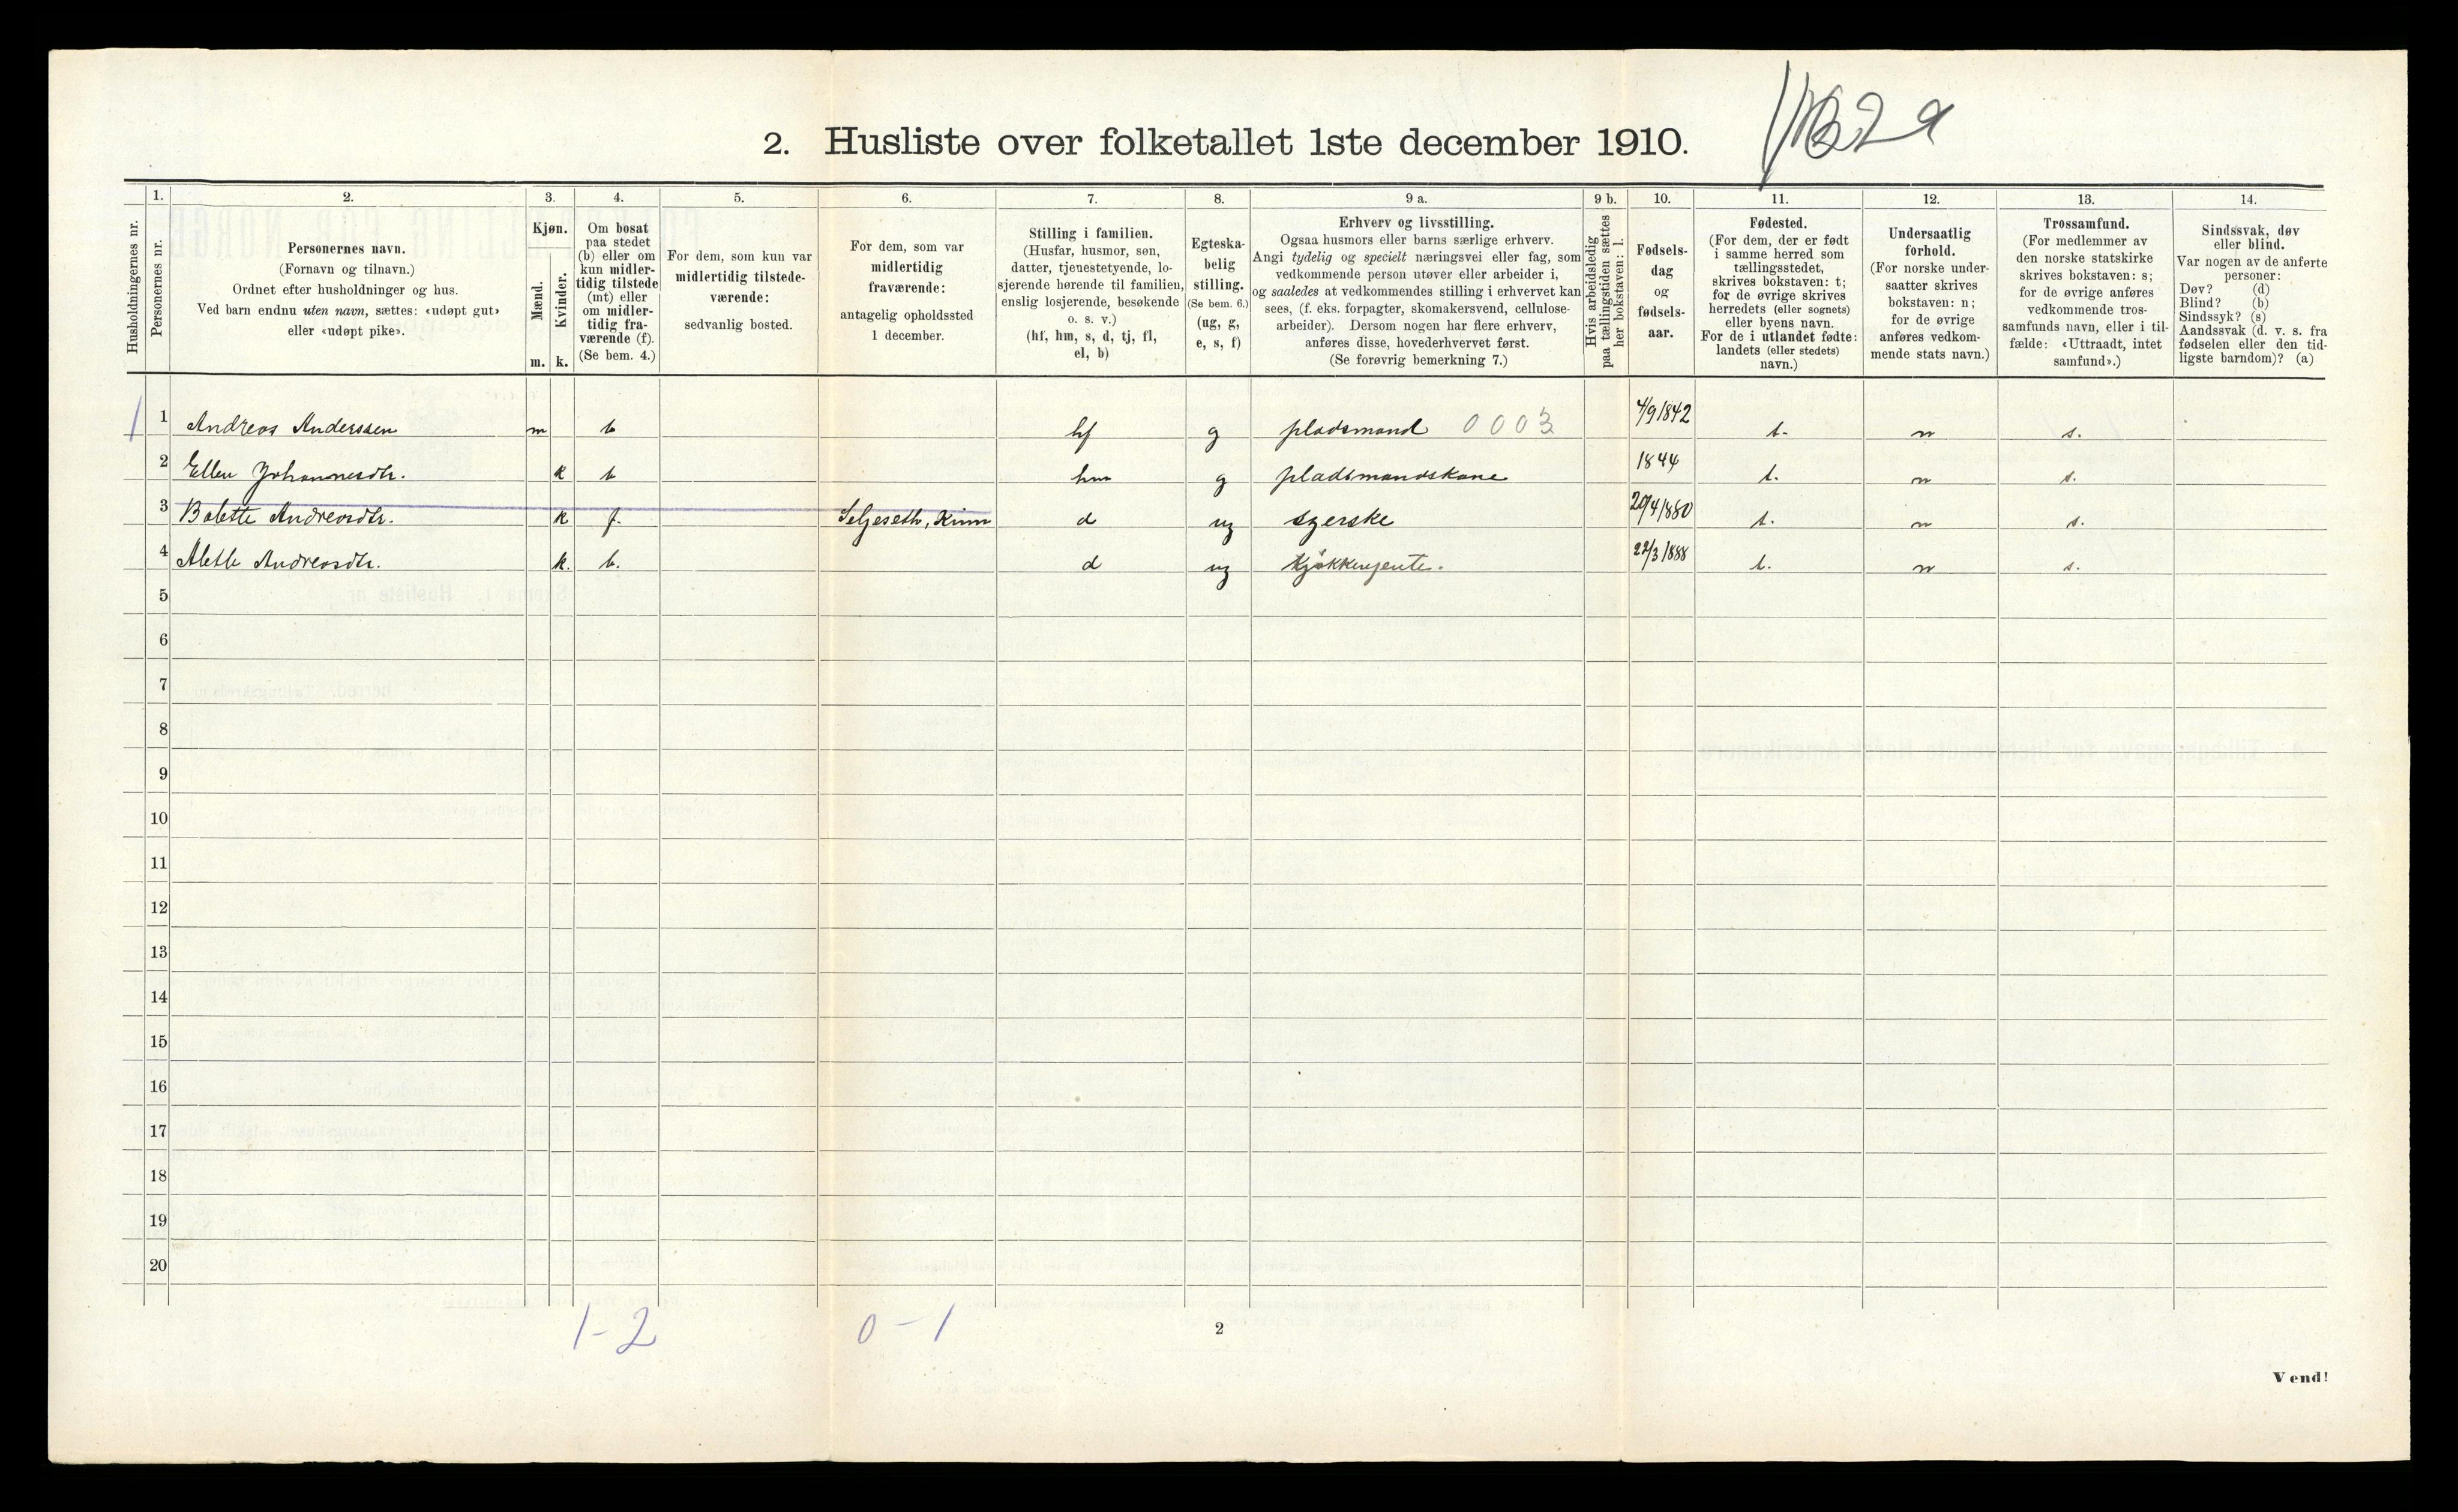 2. Husliste over folketallet 1ste december 1910.
Husholdningernes nr.
1.
Personernes nr.
2.
Personernes navn.
(Fornavn og tilnavn.)
Ordnet efter husholdninger og hus.
Ved barn endnu uten navn, sættes: «udøpt gut»
eller «udøpt pike».
3.
Kjøn.
Mænd.
Kvinder.
m. k.
4.
Om bosat
paa stedet
(b) eller om
kun midler-
tidig tilstede
(mt) eller
om midler-
tidig fra-
værende (f).
(Se bem. 4.)
5.
For dem, som kun var
midlertidig tilstede-
værende:
sedvanlig bosted.
6.
For dem, som var
midlertidig
fraværende:
antagelig opholdssted
1 december.
7.
Stilling i familien.
(Husfar, husmor, søn,
datter, tjenestetyende, lo-
sjerende hørende til familien,
enslig losjerende, besøkende
o. s. v.)
(hf, hm, s, d, tj, fl,
el, b)
8.
Egteska-
belig
stilling.
(Se bem. 6.)
(ug, g,
e, s, f)
9 a.
Erhverv og livsstilling.
Ogsaa husmors eller barns særlige erhverv.
Angi tydelig og specielt næringsvei eller fag, som
vedkommende person utøver eller arbeider i,
og saaledes at vedkommendes stilling i erhvervet kan
sees, (f. eks. forpagter, skomakersvend, cellulose-
arbeider). Dersom nogen har flere erhverv,
anføres disse, hovederhvervet først.
(Se forøvrig bemerkning 7.)
9 b.
Hvis arbeidsledig
paa tællingstiden sættes
her bokstaven: l.
10.
Fødsels-
dag
og
fødsels-
aar.
11.
Fødested.
(For dem, der er født
i samme herred som
tællingsstedet,
skrives bokstaven: t;
for de øvrige skrives
herredets (eller sognets)
eller byens navn.
For de i utlandet fødte:
landets (eller stedets)
navn.)
12.
Undersaatlig
forhold.
(For norske under-
saatter skrives
bokstaven: n;
for de øvrige
anføres vedkom-
mende stats navn.)
13.
Trossamfund.
(For medlemmer av
den norske statskirke
skrives bokstaven: s;
for de øvrige anføres
vedkommende tros-
samfunds navn, eller i til-
fælde: «Uttraadt, intet
samfund».)
14.
Sindssvak, døv
eller blind.
Var nogen av de anførte
personer:
Døv? (d)
Blind? (b)
Sindssyk? (s)
Aandssvak (d. v. s. fra
fødselen eller den tid-
ligste barndom)? (a)
1 1 Andreas Anderssen m b hf g pladsmand 0003 4/9 1842 t. n s.
2 Ellen Johannesdtr. k b hm g pladsmandskone 1844 t. n s.
3 Bolette Andreasdtr. k f. Seljeseth, Kinn d ug syerske 20/4 1880 t. n s.
4 Alette Andreasdtr. k. b. d ug kjøkkenjente. 22/3 1888 t. n s.
5
6
7
8
9
10
11
12
13
14
15
16
17
18
19
20
1-2 0-1
2
Vend!